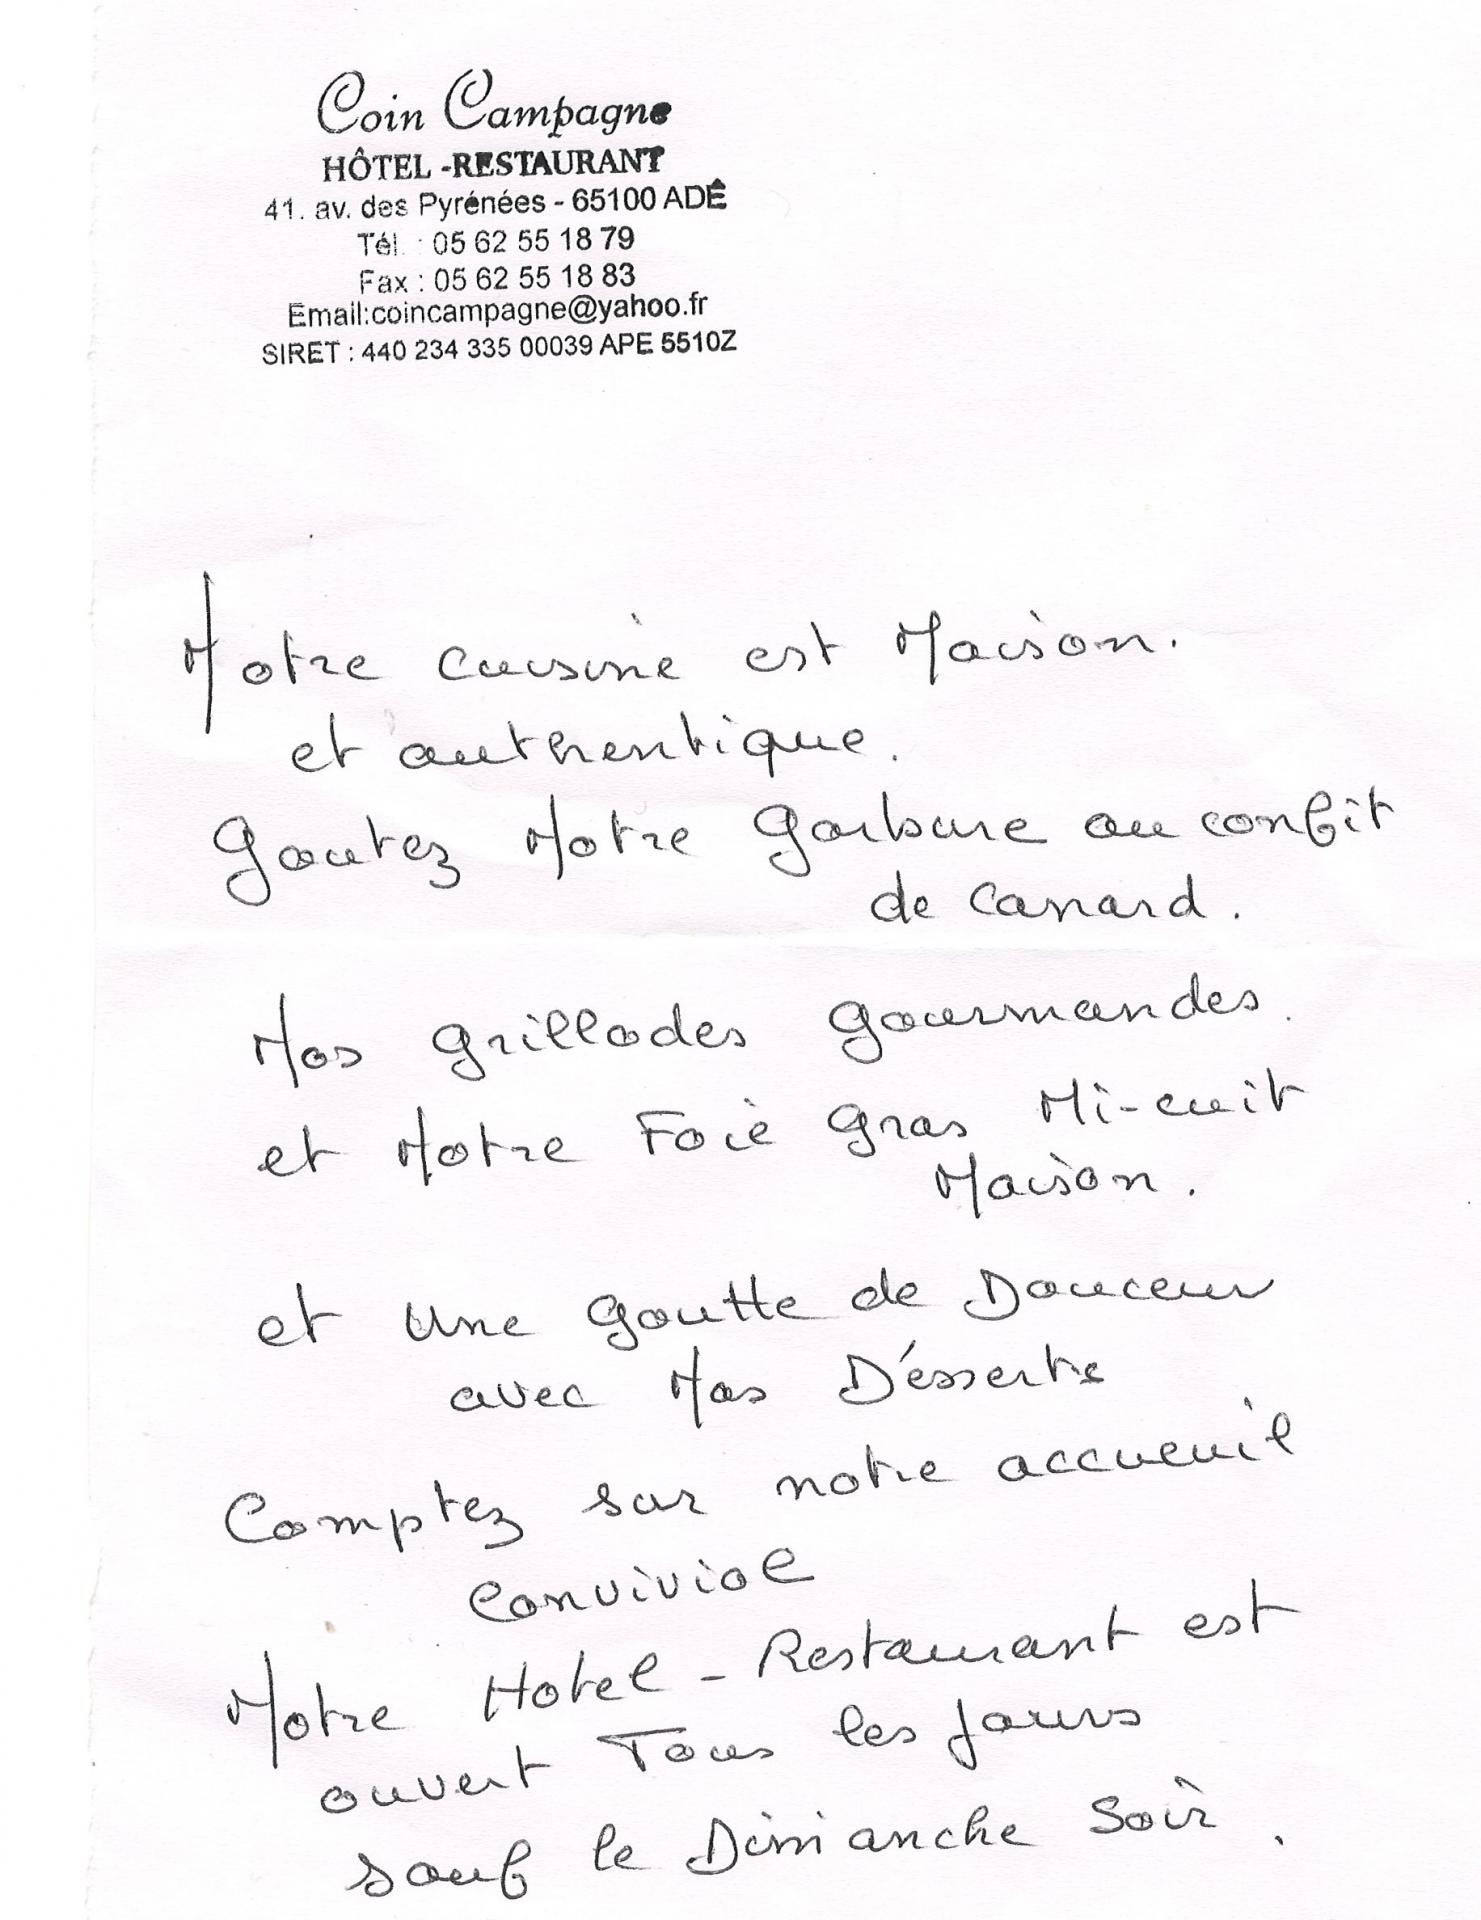 Coin Campagne
HÔTEL-RESTAURANT
41. av. des Pyrénées - 65100 ADÉ
Tél. : 05 62 55 18 79
Fax : 05 62 55 18 83
Email:coincampagne@yahoo.fr
SIRET : 440 234 335 00039 APE 5510Z
Notre cuisine est Maison.
et authentique.
Goutez Notre Garbure au confit
de canard.
Nos grillades gourmandes.
et Notre Foie gras Mi-cuit
Maison.
et une goutte de Douceur
avec Nos Désserts
Comptez sur notre accueuil
convivial
Notre Hotel - Restaurant est
ouvert Tous les jours
sauf le Dimanche Soir.